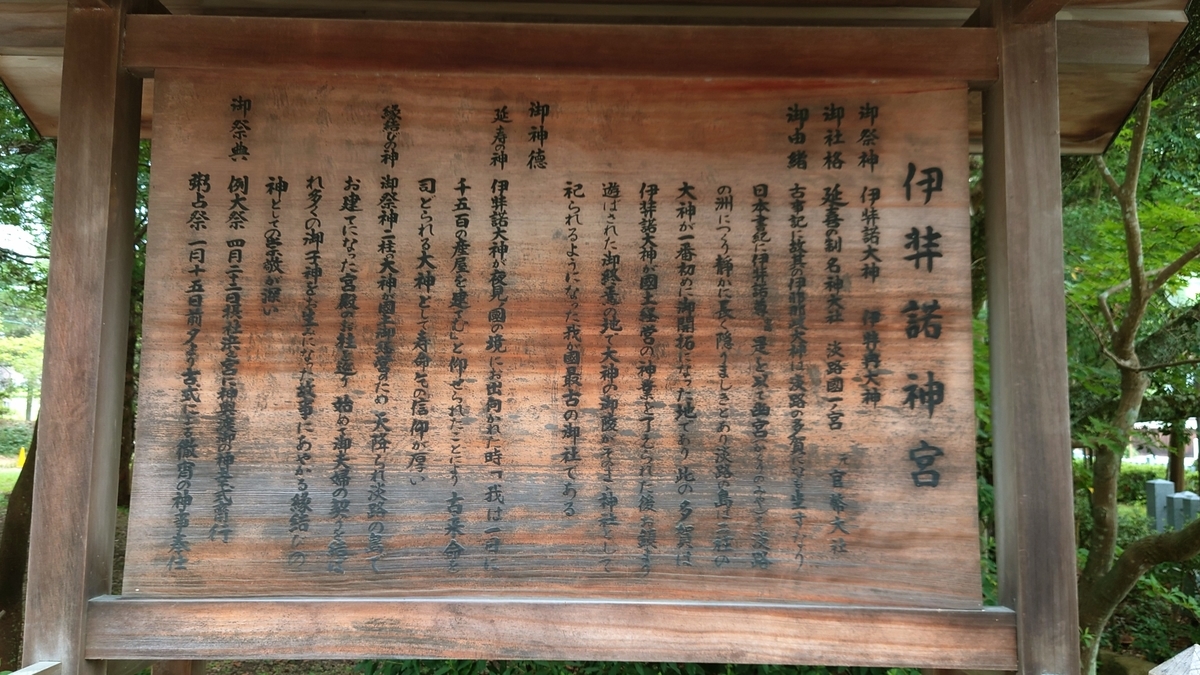 伊弉諾神宮
御祭神 伊弉諾大神 伊弉冉大神
御社格 延喜の制 名神大社 淡路國一ノ宮 元 官幣大社
御由緒 古事記に故其の伊邪那岐大神は淡路の多賀になも坐すなり
日本書紀に伊弉諾尊 是を以て幽宮を淡路
の洲につくり静かに長く隠りましきとあり淡路の島は二柱の
大神が一番初めに御開拓になった地であり 此の多賀は
伊弉諾大神が國土経営の神業を了えられた後お鎮まり
遊ばされた御終焉の地で大神の御陵がそのまま神社として
祀られるようになった我が國最古の御社である
御神徳
延寿の神 伊弉諾大神が夜見の國の境にお出向かれた時「我は一日に
千五百の産屋を建てむ」と仰せられたことにより 古来命を
司どられる大神として寿命その信仰が厚い
縁結の神 御祭神二柱の大神が國土御経営のため 天降られ淡路の島で
お建てになった宮殿のお柱を巡り 始めて御夫婦の契りを結ば
れ多くの御子神をお生みになった故事にあやかる縁結びの
神としての崇敬が深い
御祭典 例大祭 四月二十二日摂社浜の宮に神輿渡御の神幸式斎行
粥占祭 一月十五日前夕より古式による徹宵の神事奉仕